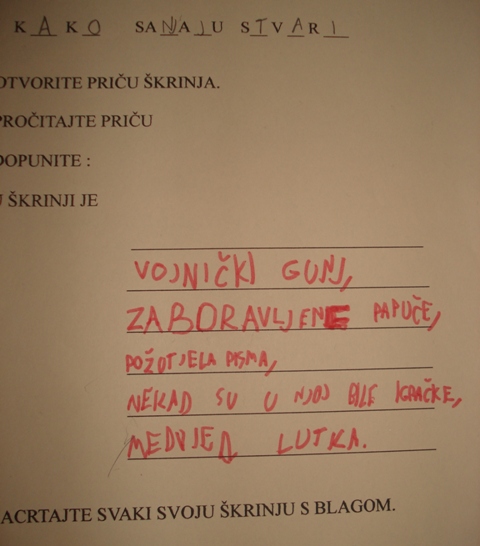 KAKO SANJAJU STVARI
OTVORITE PRIČU ŠKRINJA.
PROČITAJTE PRIČU
DOPUNITE :
U ŠKRINJI JE
VOJNIČKI GUNJ,
ZABORAVLJENE PAPUČE,
POŽUTJELA PISMA,
NEKAD SU U NJOJ BILE IGRAČKE,
MEDVJED LUTKA.
ACRTAJTE SVAKI SVOJU ŠKRINJU S BLAGOM.